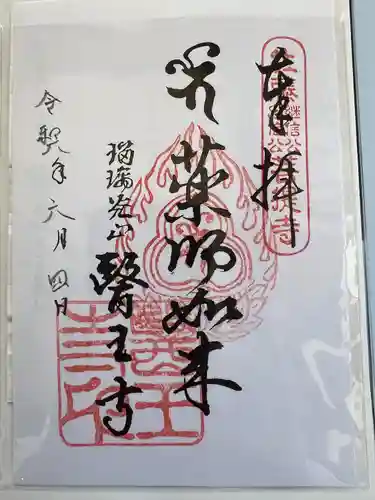 奉拝
薬師如来
瑠璃光山
醫王寺
令和元年六月四日